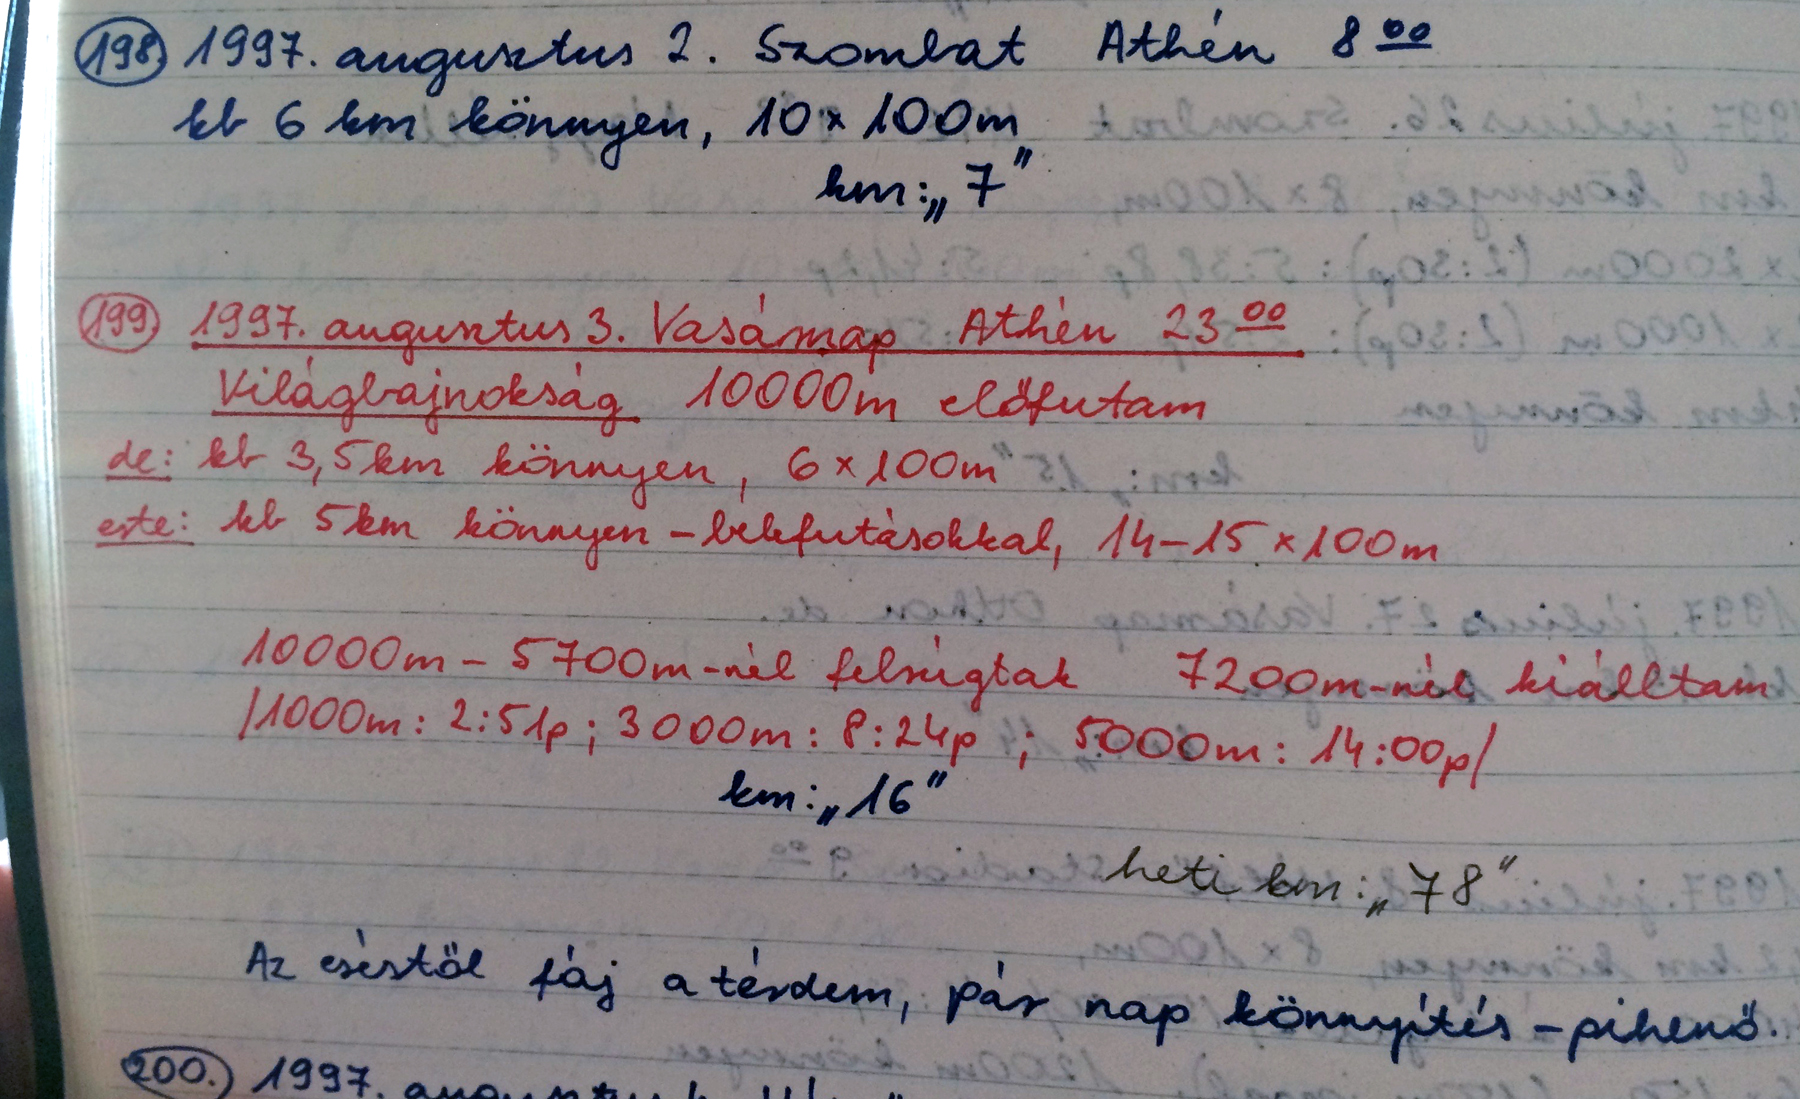 198 1997. augusztus 2. Szombat Athén 8 00
kb 6 km könnyen, 10 x 100m
km: „7”
199 1997. augusztus 3. Vasárnap Athén 23 00
Világbajnokság 10000m előfutam
de: kb 3,5km könnyen, 6 x 100m
este: kb 5km könnyen - belefutásokkal, 14-15 x 100m
10000m - 5700m-nél felrúgtak 7200m-nél kiálltam
/1000m: 2:51p; 3000m: 8:24p; 5000m: 14:00p/
km: „16”
heti km: „78”
Az eséstől fáj a térdem, pár nap könnyítés - pihenő.
200. 1997. augusztus